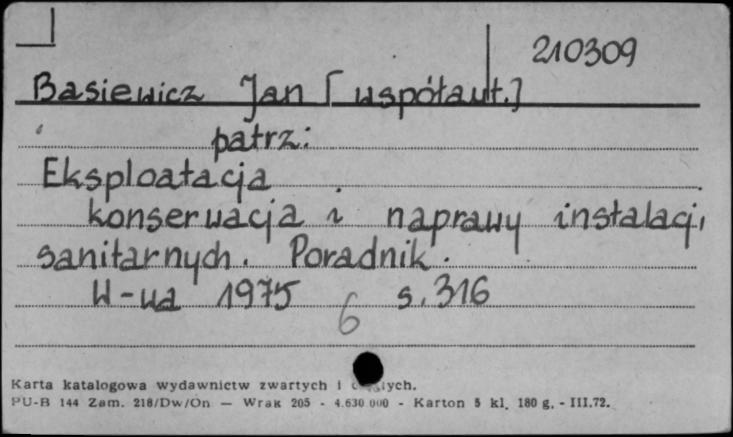 210309
Basiewicz Jan [współaut.]
patrz:
Eksploatacja
konserwacja i naprawy instalacji
sanitarnych. Poradnik.
W-wa 1975 s. 316
6
Karta katalogowa wydawnictw zwartych i
PU-B 144 Zam. 218/Dw/On — Wrak 205 - 4.630 000 - Karton 5 kl. 180 g. - III.72.